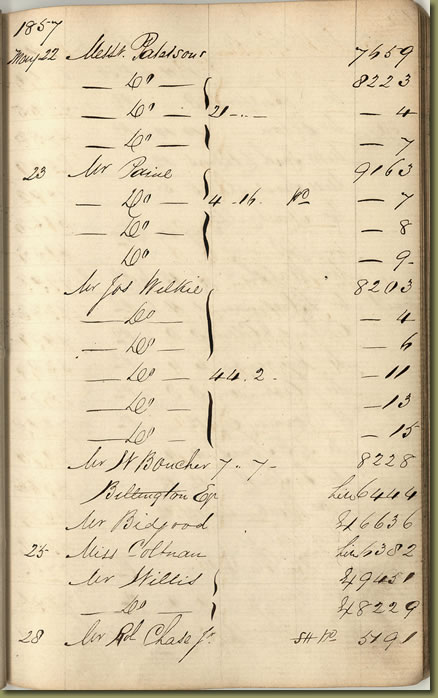 1857
May 22 Messrs. Pattisons 7459
— Do — 8223
— Do — 21 -..- — 4
— Do — — 7
23 Mr Paine 9163
— Do — 4 .16. No — 7
— Do — — 8
Do — 9
Mr Jos Wilkie 8203
— Do — — 4
— Do — — 6
— Do — 44. 2. — 11
— Do — — 13
— Do — — 15
Mr W Boucher 7 .. 7 - 8228
Billington Eq 6444
Mr Bidgood 6636
25 Miss Coltman 6382
Mr Willis
— Do — 8229
28 Mr Chase Jr No 5191